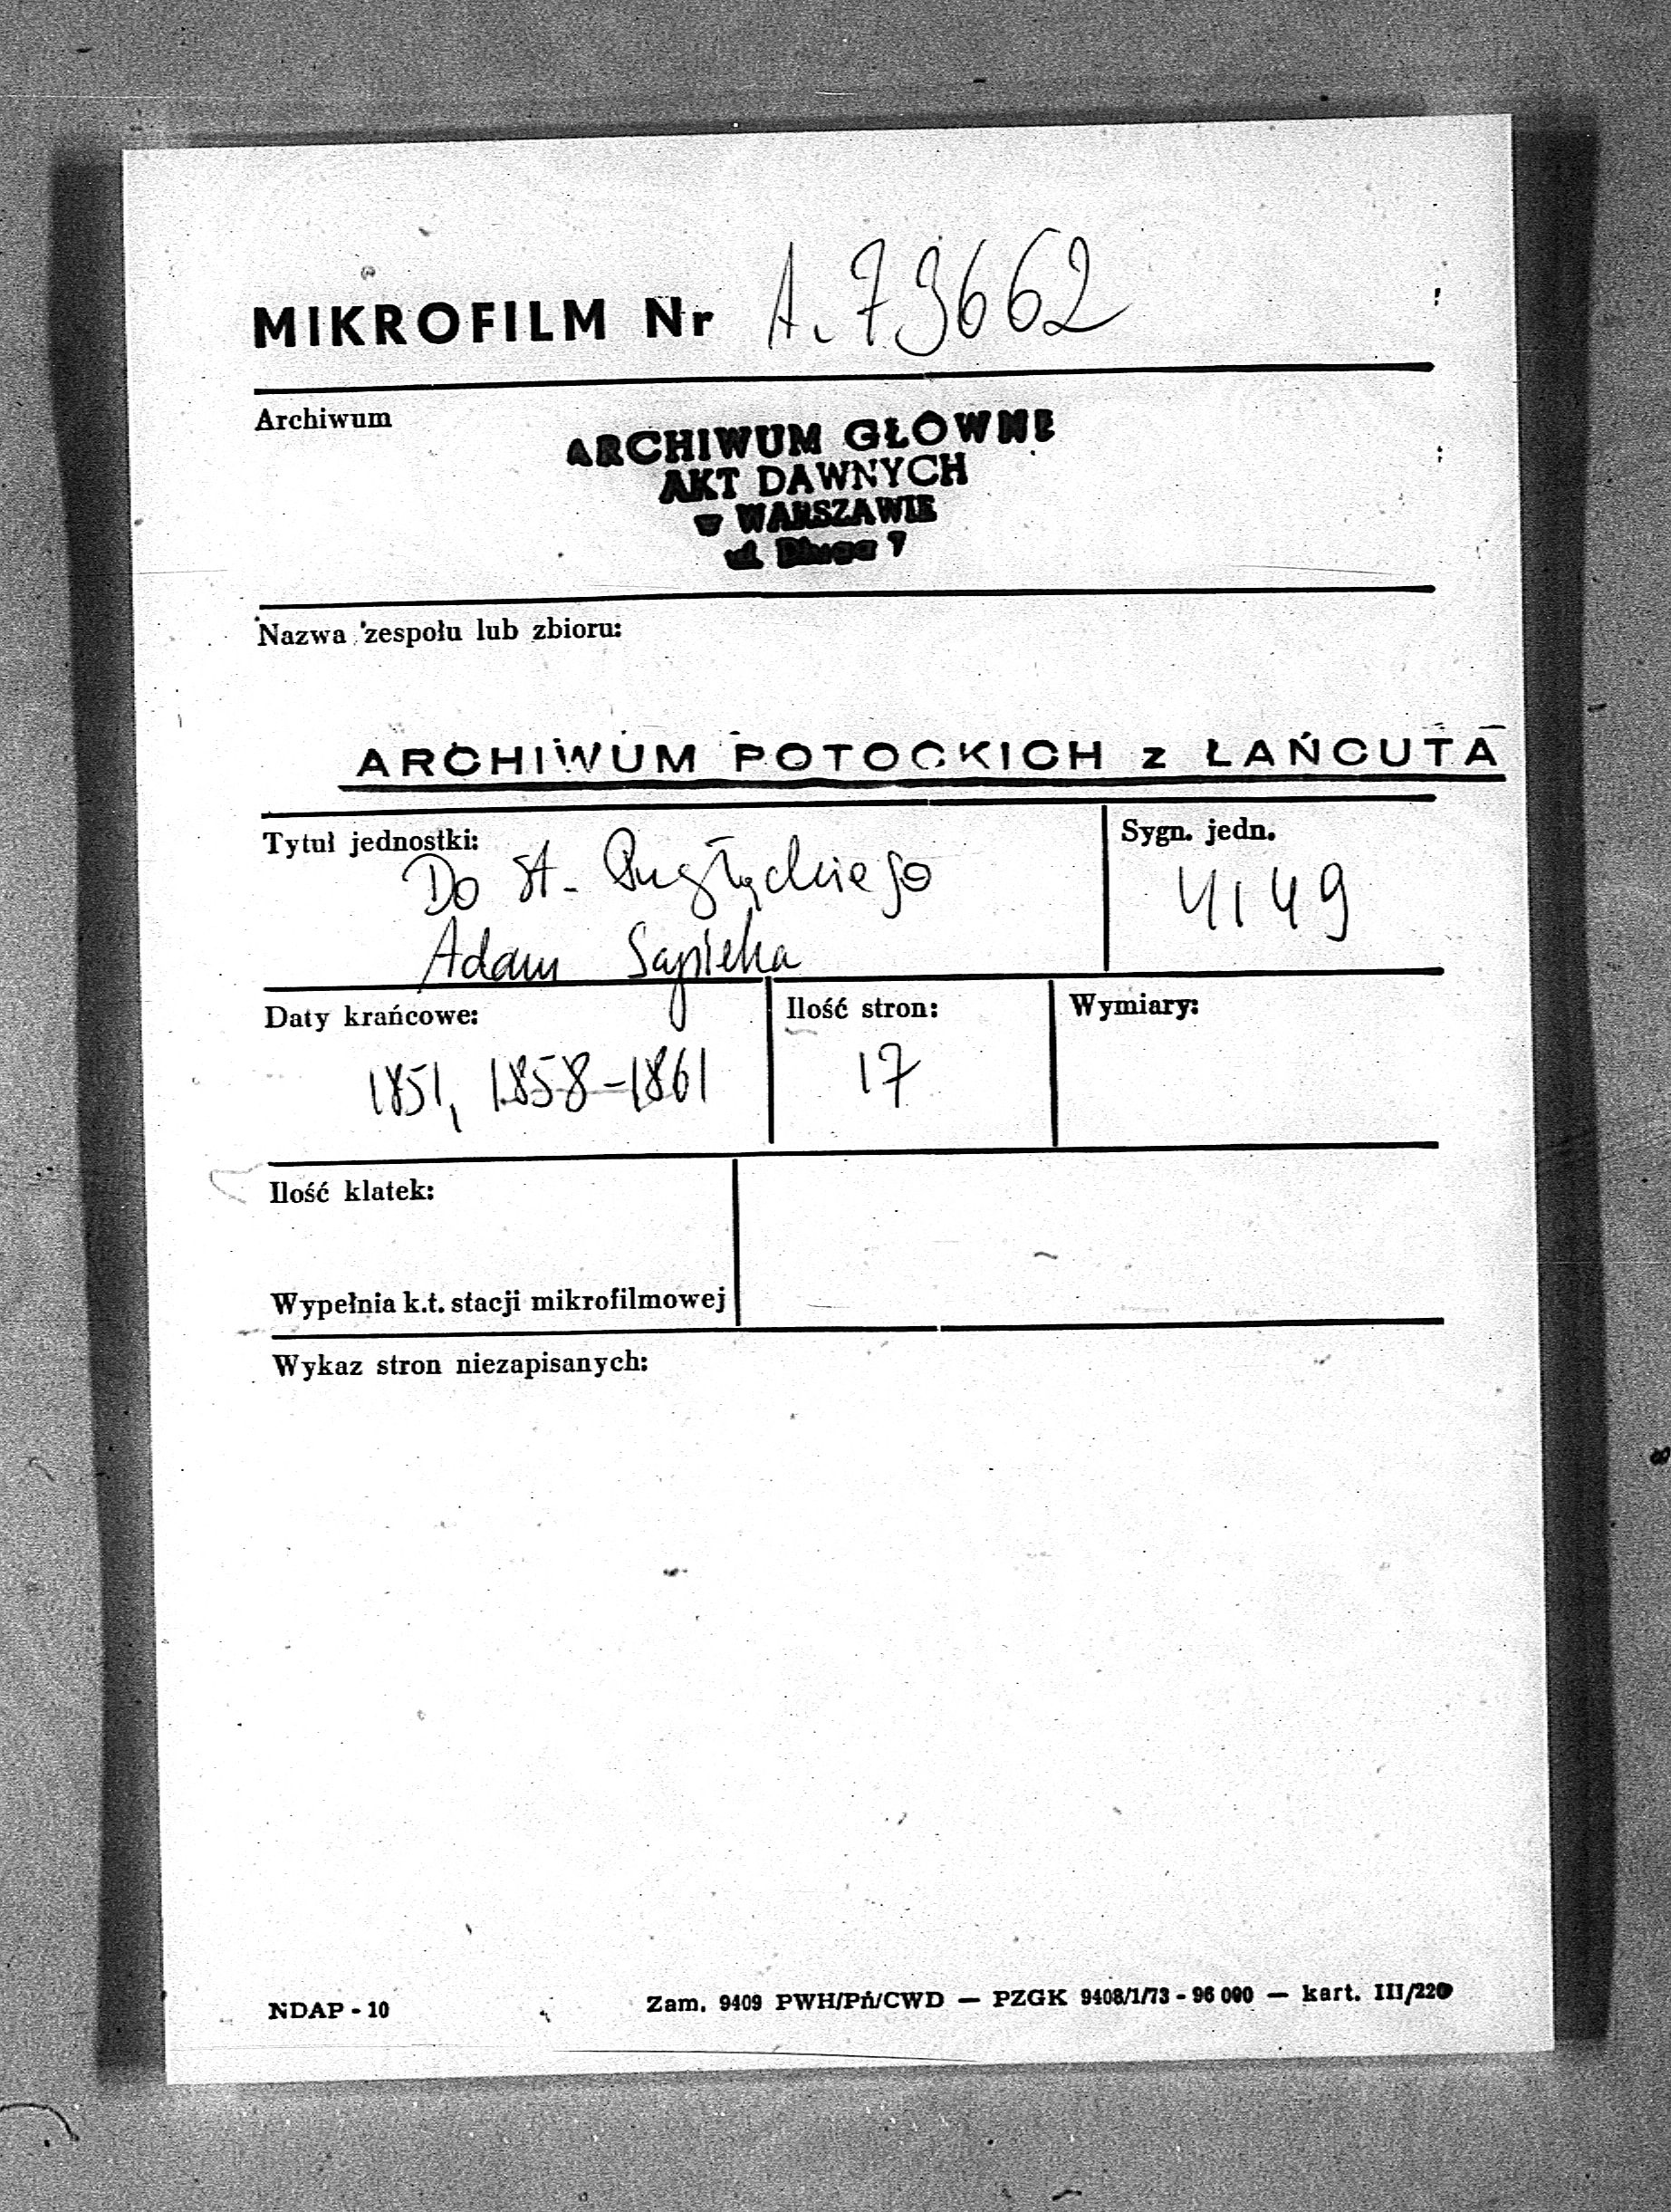 MIKROFILM Nr A. 79662
Archiwum
ARCHIWUM GŁÓWNE
AKT DAWNYCH
w WARSZAWIE
ul. Długa 7
Nazwa zespołu lub zbioru:
ARCHIWUM POTOCKICH z ŁAŃCUTA
Tytuł jednostki:
Sygn. jedn.
Do St.
4149
Adam Sapieha
Daty krańcowe:
Ilość stron:
Wymiary:
1851, 1858-1861
17
Ilość klatek:
Wypełnia k.t. stacji mikrofilmowej
Wykaz stron niezapisanych:
NDAP - 10
Zam. 9409 PWH/Pń/CWD — PZGK 9408/1/73 - 96 000 — kart. III/220